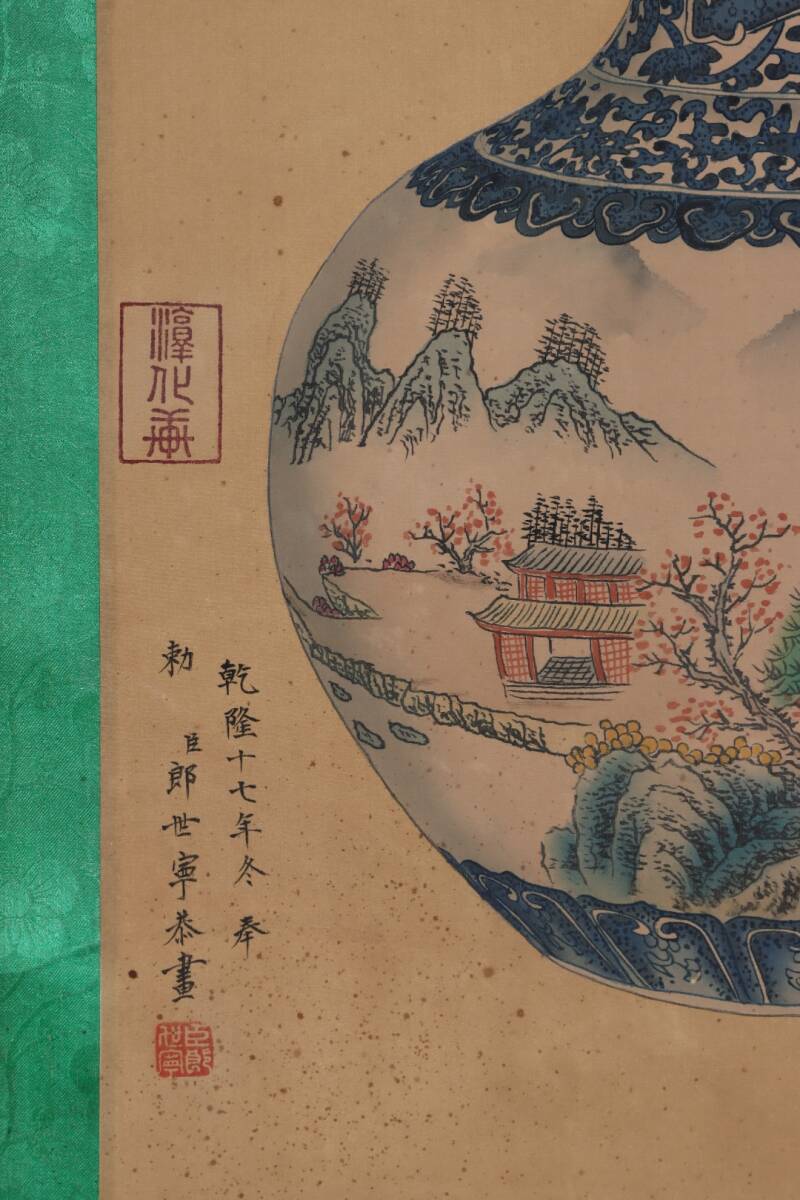 乾隆十七年冬奉
勅 臣郎世寧恭畫
淳化軒
臣郎世寧